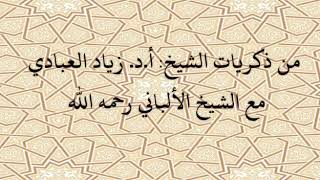 من ذكريات الشيخ: أ.د. زياد العبادي
مع الشيخ الألباني رحمه الله